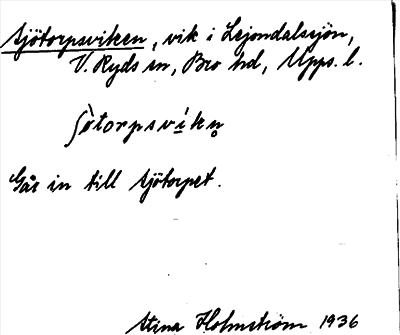 Sjötorpsviken, vik i Lejondalssjön,
V. Ryds sn, Bro hd, Upps. l.
ʃö̀torpsvi̲kn̥
Går in till Sjötorpet.
Stina Holmström 1936